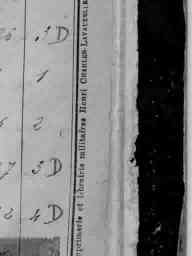 3D
1
2
3D
4D
Imprimerie et librairie militaires Henri CHARLES-LAVAUZELLE